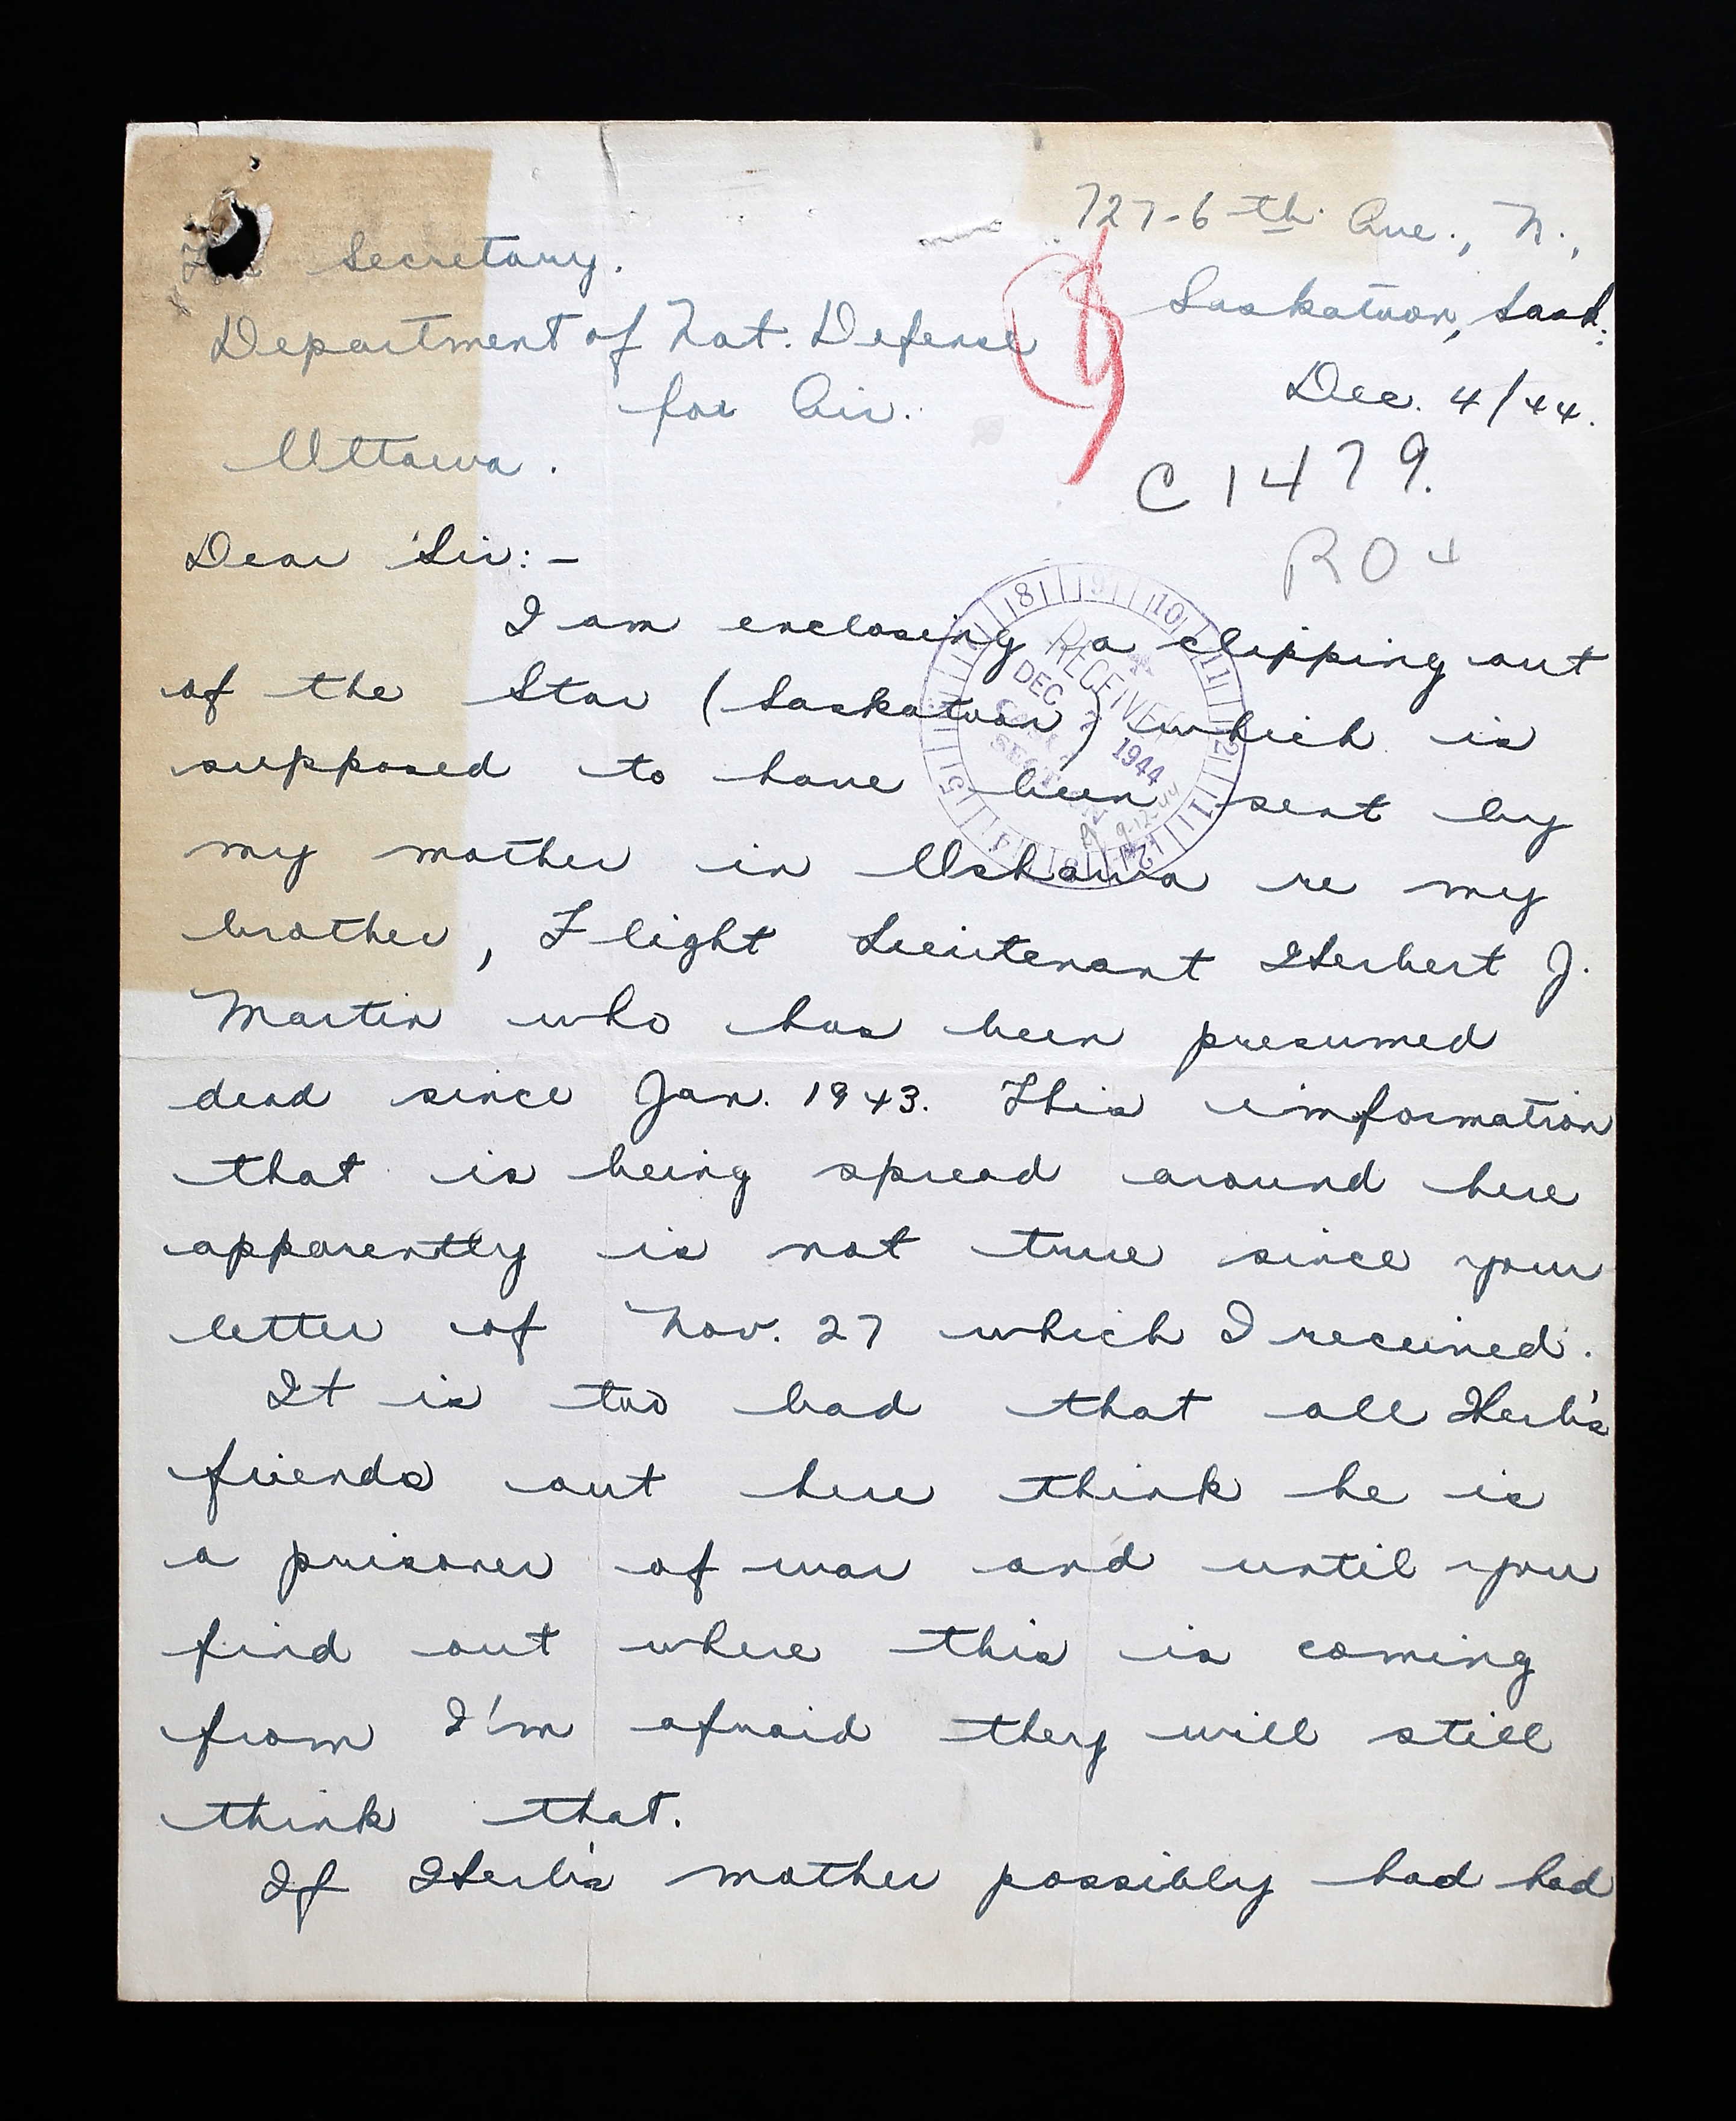 727-6th Ave., N.,
Saskatoon, Sask.
Dec. 4/44.
The Secretary.
Department of Nat. Defense
for Air.
Ottawa.
C1479.
RO4
Dear Sir:-
I am enclosing a clipping out
of the Star (Saskatoon) which is
supposed to have been sent by
my mother in Oshawa re my
brother, Flight Lieutenant Herbert J.
Martin who has been presumed
dead since Jan. 1943. This imformation
that is being spread around here
apparently is not true since your
letter of Nov. 27 which I received.
It is too bad that all Herb's
friends out here think he is
a prisoner of war and until you
find out where this is coming
from I'm afraid they will still
think that.
If Herb's mother possibly had had
8 9 10 11 12 1
RECEIVED
DEC
1944
9-12-44